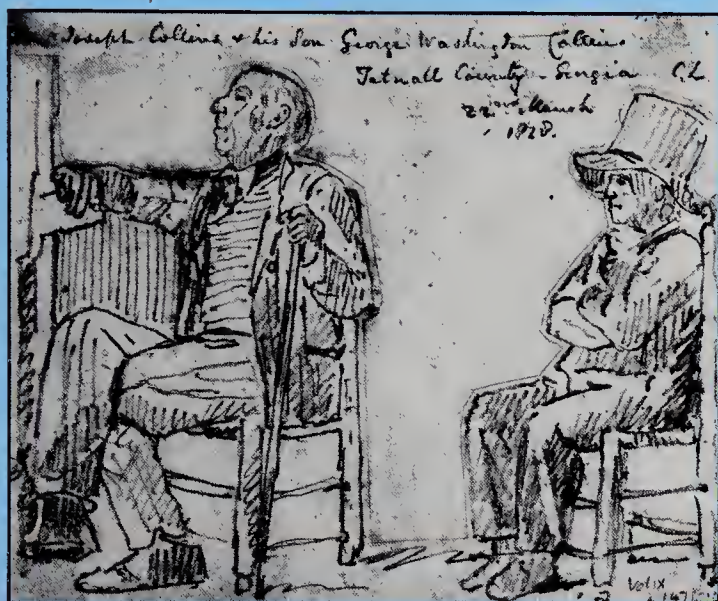 Joseph Collins & his Son George Washington Collins
Tatnall County Georgia
22nd March
1828.